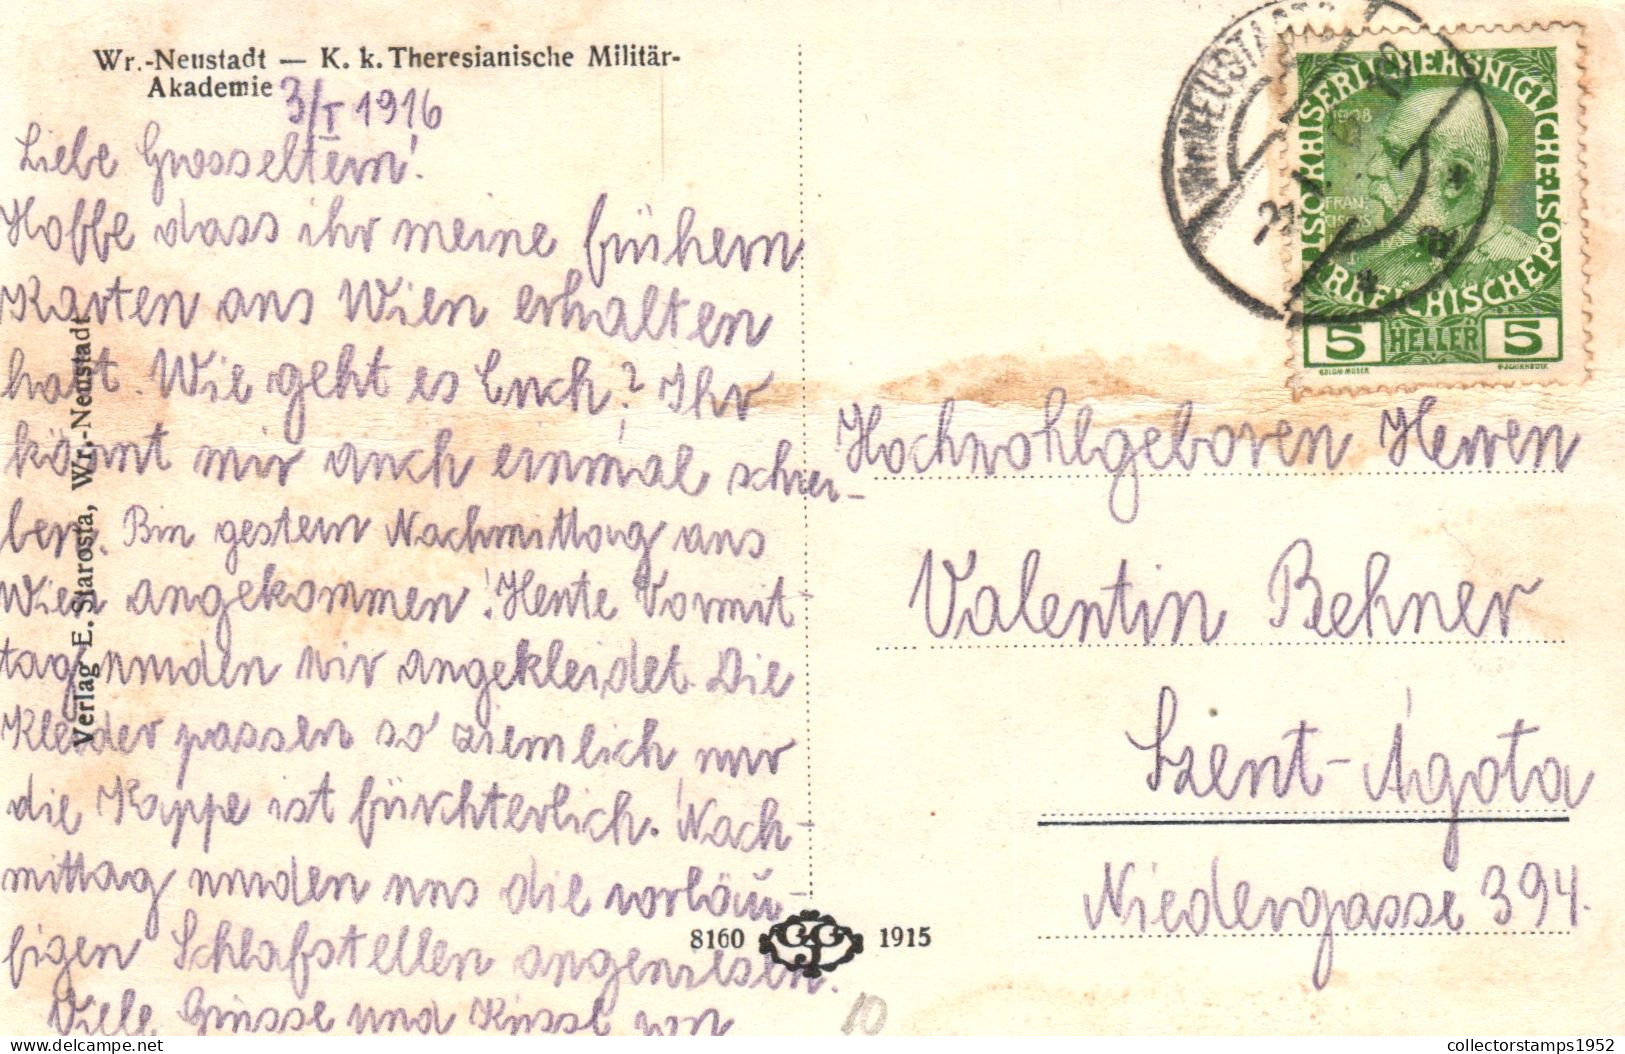 Wr.-Neustadt — K. k. Theresianische Militär-
Akademie
3/I 1916
Liebe Grosseltern!
Hoffe dass ihr meine frühern
Karten aus Wien erhalten
habt. Wie geht es Euch? Ihr
könnt mir auch einmal schrei-
ben. Bin gestern Nachmittag aus
Wien angekommen! Heute Vormit-
tag wurden wir angekleidet. Die
Kleider passen so ziemlich nur
die Kappe ist fürchterlich. Nach-
mittag wurden uns die vorläu-
figen Schlafstellen angewiesen.
Viele Grüsse und Küsse von
Verlag E. Starosta, Wr.-Neustadt
8160 1915
10
WR. NEUSTADT
1908
FRAN
ÖSTERREICHISCHE POST
5 HELLER 5
KOLOM. MOSER
Hochwohlgeboren Herren
Valentin Behner
Szent-Ágota
Niedergasse 394.
delcampe.net
collectorstamps1952